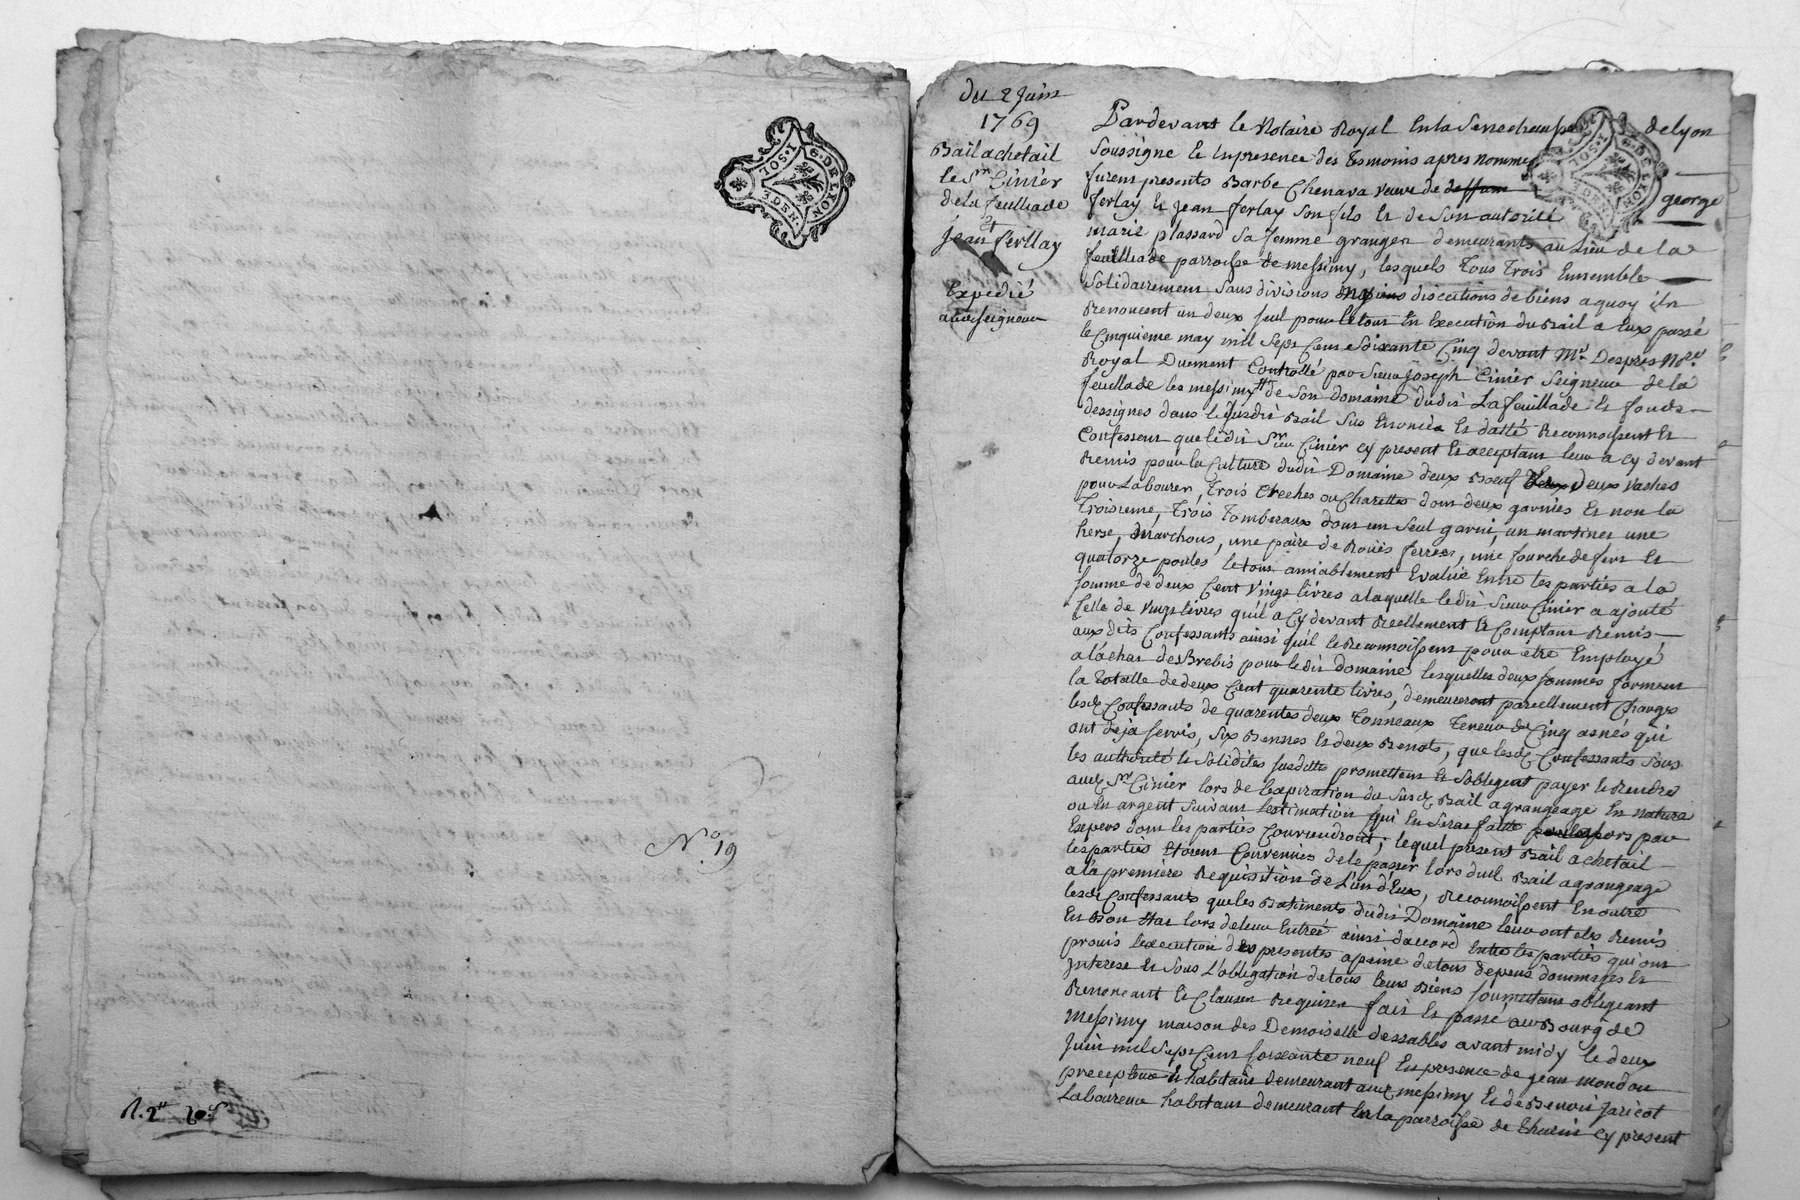 G. DE LYON
1. SOL.
2. DEN
N.º 19
du 2 Juin
1769
Bail a chetail
le Sr. Cinier
de la feuilliade
et
jean ferllay
Expedié
audt seigneur
Pardevant le Notaire Royal En la Senechaussée de lyon
Soussigné Et En presence des Temoins apres nommés
furent presents Barbe Chenava veuve de deffunt george
ferlay Et Jean ferlay Son fils Et de Son autorité
marie plassard Sa femme granger demeurants au Lieu de la
feuilliade parroisse de messimy, lesquels Tous Trois Ensemble
Solidairement Sans divisions discutions de biens a quoy ils
Renoncent un deux Seul pour le tout En Execution du Bail a Eux passé
le Cinquieme may mil Sept Cent Soixante Cinq devant Me. Despres Nre.
Royal Duement Controllé par Sieur Joseph Cinier Seigneur de la
feuillade les messimy de Son domaine dudit La feuillade Et fonds
dessignes dans le Susdit Bail Sus Enoncéa Et datté Reconnoissent Et
Confessent que ledit Sieur Cinier Cy present Et acceptant leur a Cy devant
Remis pour la Culture dudit Domaine deux Boeuf deux vaches
pour Labourer, Trois Creches ou Charettes dont deux garnies Et non la
Troisieme, Trois Tomberaux dont un Seul garni, un martinet une
herse, marchous, une paire de Roües ferrées, une fourche de fert Et
quatorze poules le tout amiablement Evalué Entre les parties a la
Somme de deux Cent Vingt livres a laquelle ledit Sieur Cinier a ajouté
Celle de Vingt livres qu'il a Cy devant Reellement Et Comptant Remis
aux dits Confessants ainsi qu'il le Reconnoissent pour etre Employé
a l'achat des Brebis pour ledit domaine lesquelles deux Sommes forment
la totalle de deux Cent quarente livres, demeureront pareillement Chargés
lesdt Confessants de quarentes deux Tonneaux Teneur de Cinq asnés qui
ont dejà Servis, Six Bennes Et deux Benots, que lesdt Confessants Sous
les authorité Et Solidités Susditte promettent Et Soblegent payer Et Rendre
audt Sr Cinier lors de lexpiration du Susdt Bail a grangeage En nature
ou En argent Suivant lestimation qui En Sera faitte par
Expers dont les parties Conviendront; lequel present Bail a chetail
les parties Etoient Convenües de le passer lors dudt Bail a grangeage
a la premiere Requisition de L'un d'Eux, Reconnoissent En outre
lesdt Confessants que les Batiments dudit Domaine leur ont etés Remis
En Bon Etat lors de leur Entrée ainsi daccord Entre les parties qui ont
promis lexecution des presentes a peine de tous depens dommages Et
Interese Et Sous L'obligation de tous leurs Biens Soumettant obligeant
Renonçant Et Clauses Requises fait Et passé au Bourg de
Messimy maison des Demoiselle dessables avant midy le deux
Juin mil Sept Cent Soixante neuf En presence de jean mondon
precepteur Et habitant demeurant audt messimy Et de Benoit Jaricot
Laboureur habitant demeurant En la parroisse de Thurin Cy present